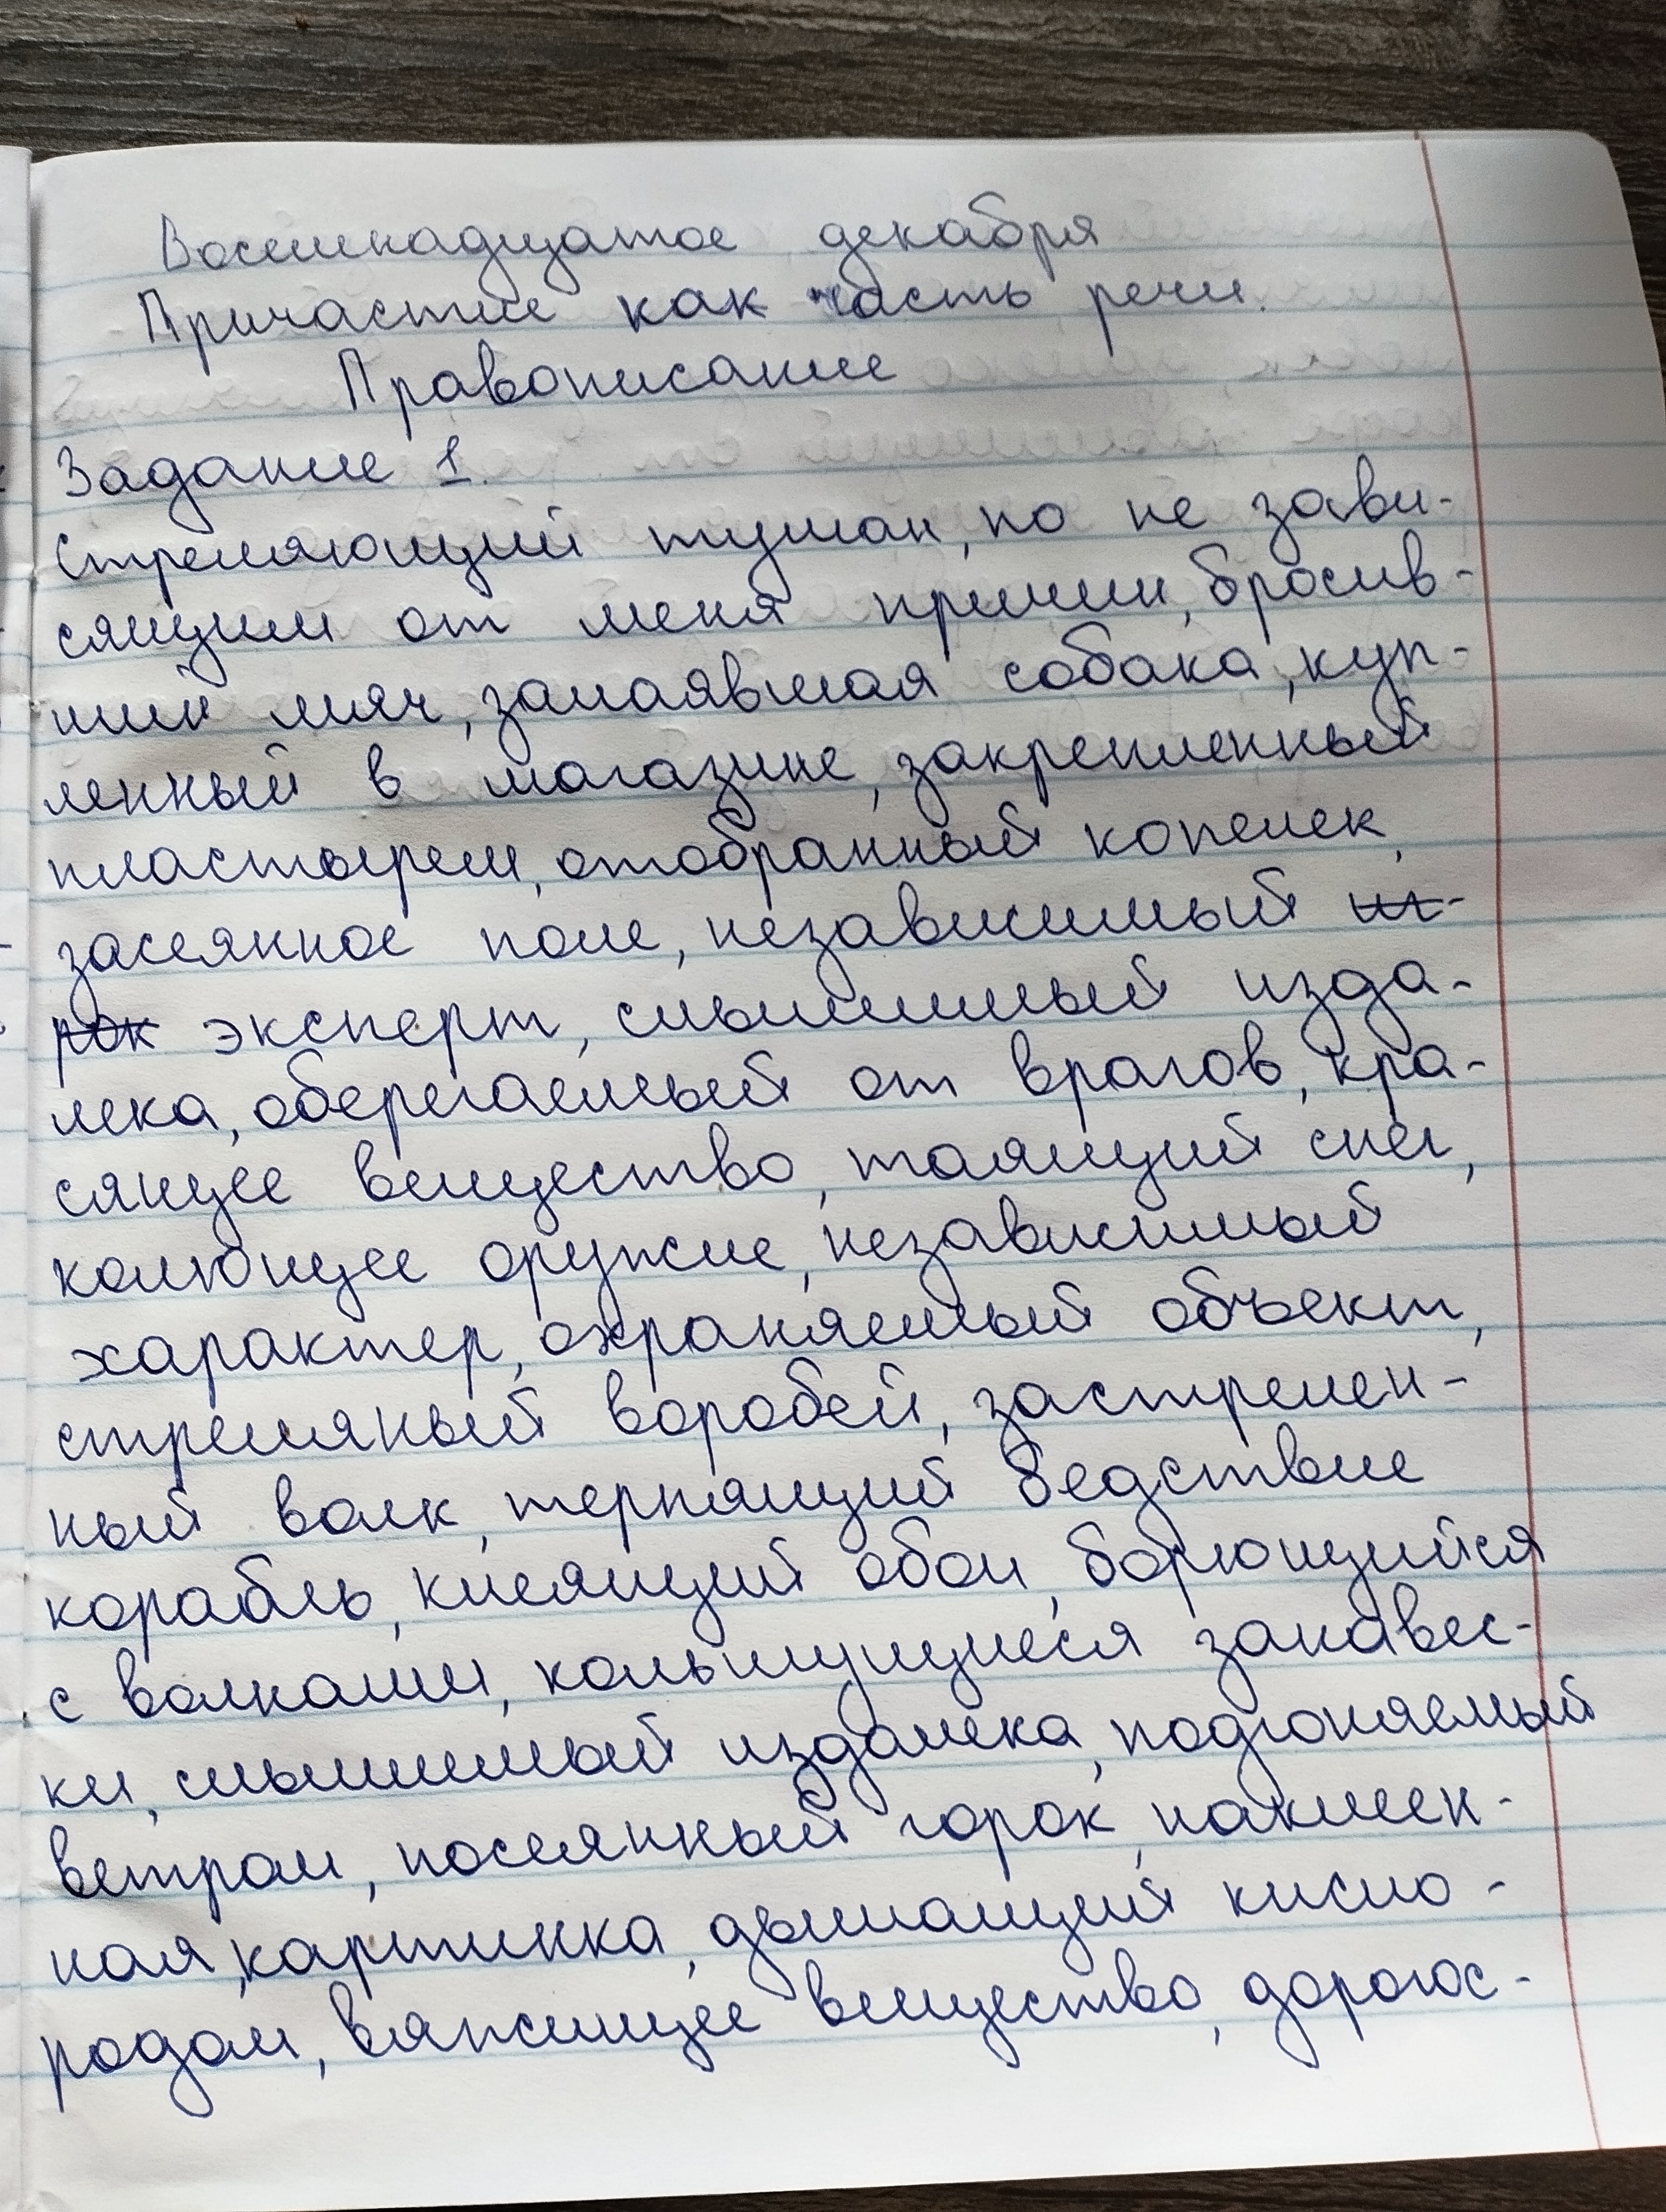 Восемнадцатое декабря
Причастие как часть речи.
Правописание
Задание 1.
Стреляющий туман, по не зави-
сящим от меня причин, бросив-
ший мяч, залаявшая собака, куп-
ленный в магазине, закрепленный
пластырем, отобранный копеек,
засеянное поле, независимый
эксперт, слышимый изда-
лека, оберегаемый от врагов, кра-
сящее вещество, таящий снег,
колющее оружие, независимый
характер, охраняемый объект,
стреляный воробей, застрелен-
ный волк, терпящий бедствие
корабль, клеящий обои, борющийся
с волками, колышущиеся занавес-
ки, слышимый издалека, подгоняемый
ветром, посеянный горох, наклеен-
ная, картинка, дышащий кисло-
родом, вяжущее вещество, дорогос-